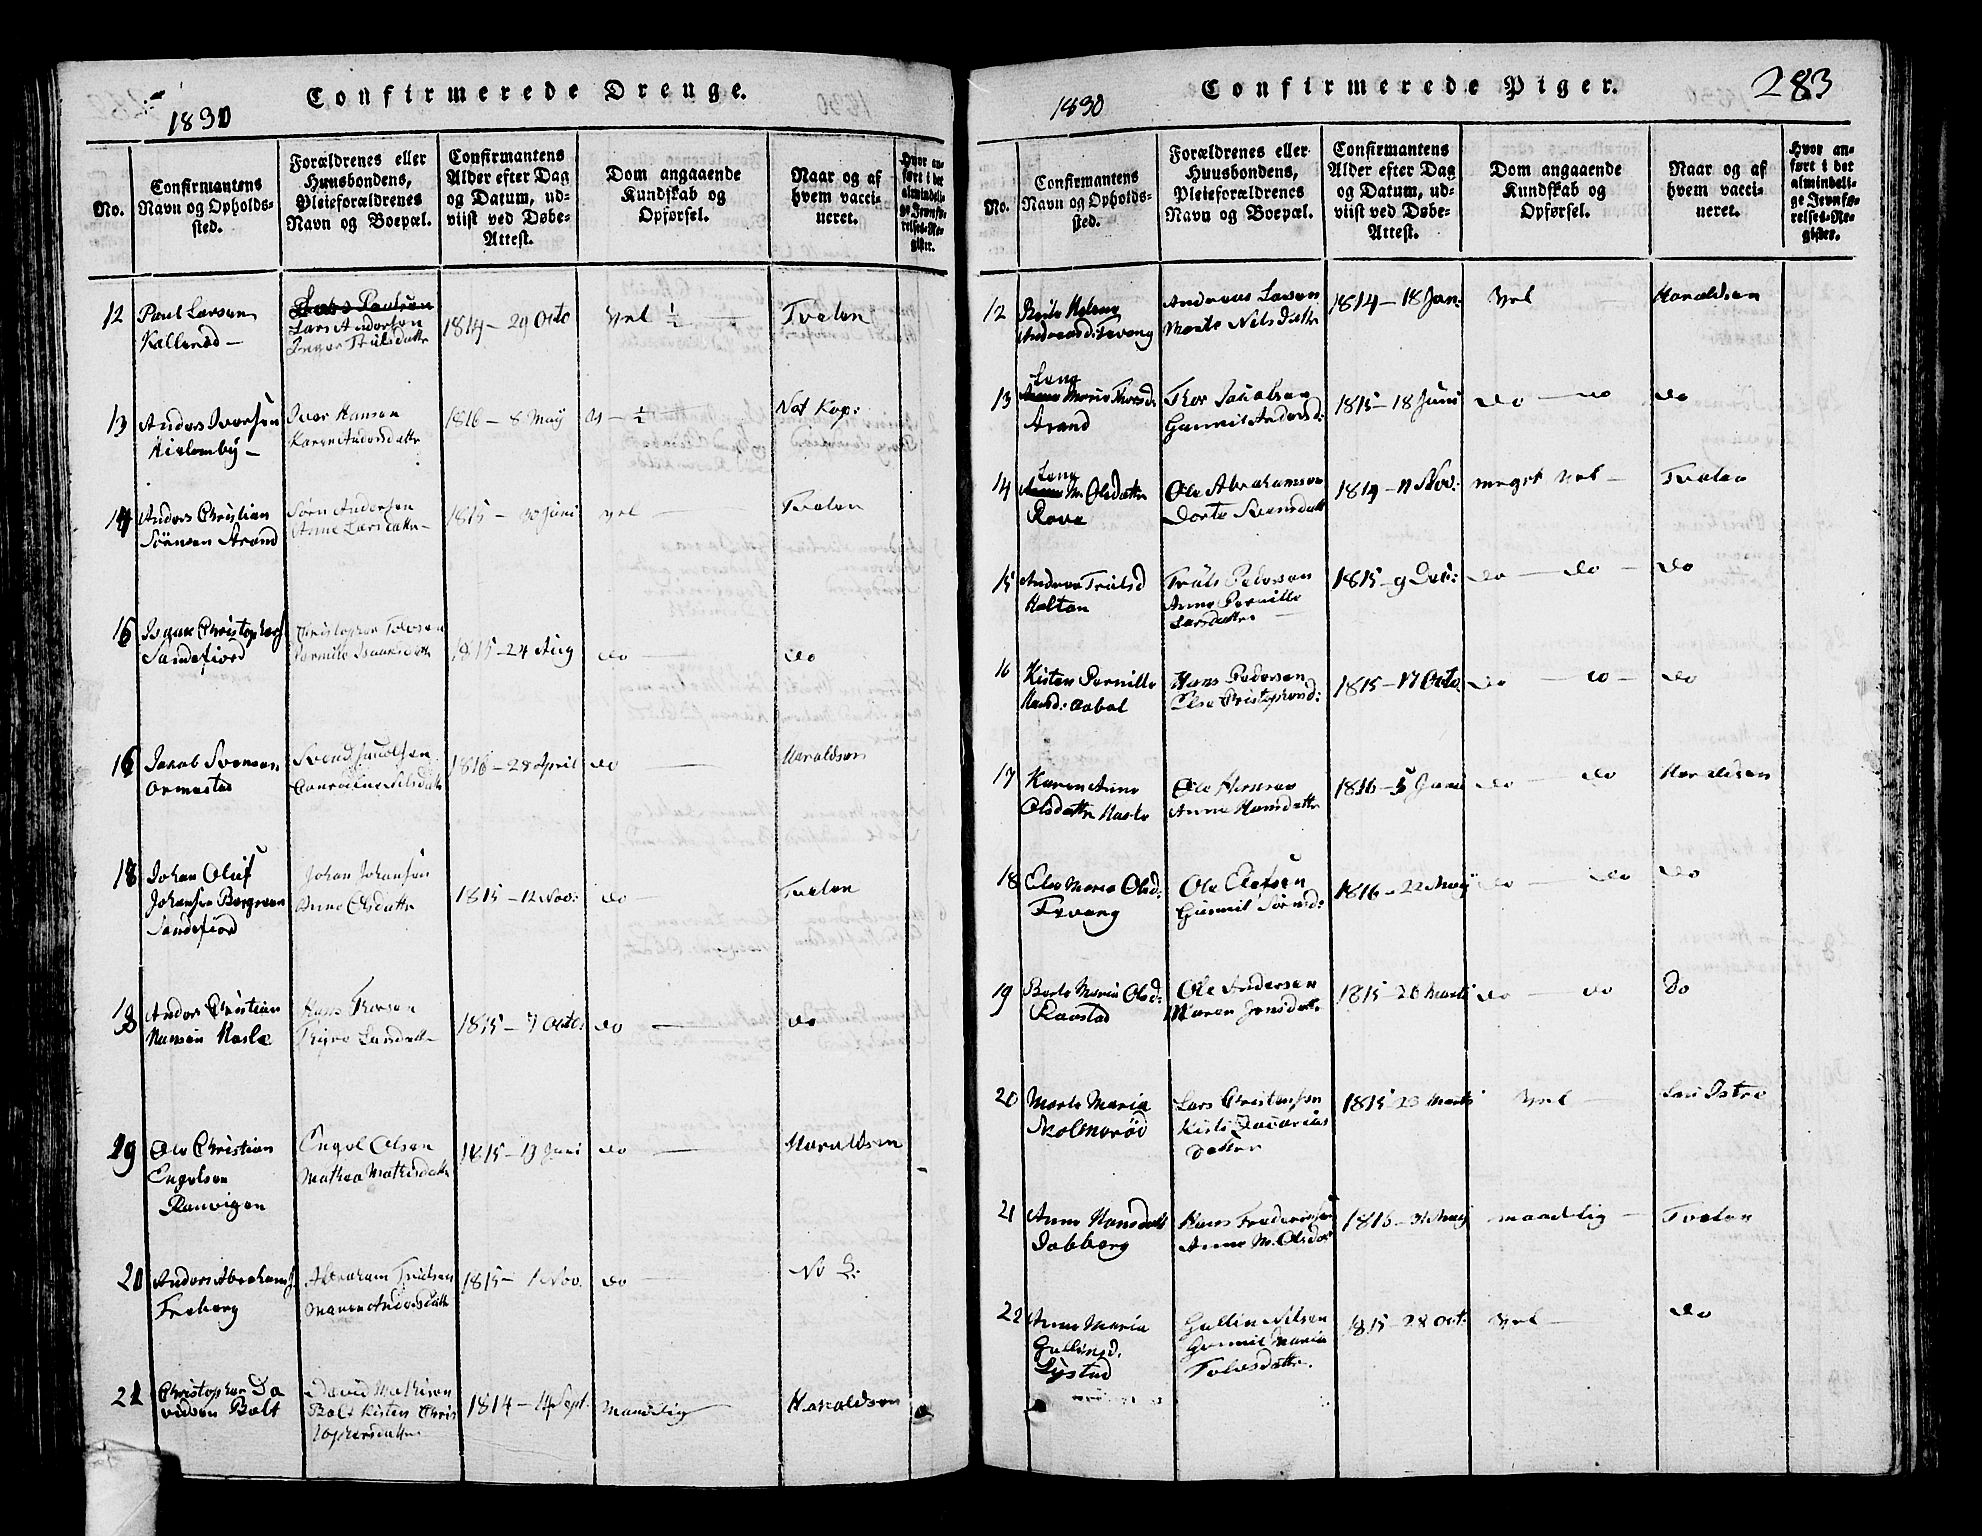 1830
Confirmerede Drenge.
No.
Confirmantens
Navn og Opholds-
sted.
Forældrenes eller
Huusbondens,
Pleieforældrenes
Navn og Boepæl.
Confirmantens
Alder efter Dag
og Datum, ud-
viist ved Døbe-
Attest.
Dom angaaende
Kundskab og
Opførsel.
Naar og af
hvem vacci-
neret.
Hvor an-
ført i det
almindeli-
ge Jevnfø-
relses-Re-
gister.
12
Paul Larsen
Lars Paulsen
Lars Andersen
1814 - 29 Octo
Vel ½
Tvelen
13
Anders Iversen
Hielomby -
Iver Hansen
Karen Andersdattr
1816 - 8 May
do - ½
Nat Kop:
14
Anders Christian
Sörensen Strand
Sørn Andersen
Anne Larsdattr -
1815 - 30 Juni
Vel
Tvelen
15
Isaac Christophers
Sandefiord
Christopher
Pernille Isaacsdattr
1815 - 24 Aug
do
do
16
Jacob Svensen
Ormestad
Svend Jacobsen
1816 - 28 April
do
Haraldsen
18
Johan Oluf
Johansen Borgersen
Sandefiord
Johan Johansen
Anne Olsdattr
1815 - 12 Nov:
do
Tvelen
18
Anders Christian
Hansen Hasle
Hans Thorsen
1815 - 7 Octo:
do
do
19
Ole Christian
Engelsen
Ranvigen
Engel Olsen
Mathea Mathisdattr
1815 - 13 Juni
do
Haraldsen
20
Anders Abrahams
Freberg
Abraham Trulsen
Maren Andersdattr
1815 - 1 Nov.
do
No 2:
21
Christopher Da
vidsen Bolt
David Mathisen
Bolt Kisten Chris
tophersdatter
1814 - 14 Sept.
Maadelig
Haraldsen
1830
Confirmerede Piger.
283
No.
Confirmantens
Navn og Opholds-
sted.
Forældrenes eller
Huusbondens,
Pleieforældrenes
Navn og Boepæl.
Confirmantens
Alder efter Dag
og Datum, ud-
viist ved Døbe-
Attest.
Dom angaaende
Kundskab og
Opførsel.
Naar og af
hvem vacci-
neret.
Hvor an-
ført i det
almindeli-
ge Jevnfø-
relses-Re-
gister.
12
Berte Helene
Andreasd: Fevang
Andreas Larsen
Marte Nilsdattr
1814 - 18 Jan.
Vel
Haraldsen
13
Maria Thorsd:
Strand
Thor Jacobsen
Gunnil Andersd:
1815 - 18 Juni
do - do
do
14
M. Olsdattr
Rove
Ole Abrahamsen
Dorte Svensdatt
1814 - 11 Nov:
meget Vel -
Tvelen
15
Andrea Trulsd
Holtan
Truls Pedersen
Anne Pernille
Larsdattr
1815 - 9 Dec:
do - do -
do
16
Kisten Pernille
Hansd: Aabol
Hans Pedersen
Else Cristophersd:
1815 - 17 Octo
do - do -
do
17
Karen Anne
Olsdattr Hasle
Ole Hansen
Anne Hansdattr
1816 - 5 Juni
do - do
Haraldsen
18
Else Maria Olsd:
Fevang
Ole Olefsen
Gunnil Sörensd:
1816 - 22 May
do - do
do
19
Berte Maria Olsd:
Ravstad
Ole Andersen
Maren Jensdattr
1815 - 26 Marts
do - do
do
20
Marte Maria
Skolmerød
Lars Christensen
Kisti Zacarias
datter
1815 - 23 Marts
Vel -
21
Anne Hansdatt
Dobberg
Hans Frederiksen
Anne M. Olsdat
1815 - 31 May
maadelig -
Tvelen
22
Anne Maria
Gullichsd.
Lystad
Gullik Nilsen
Gunnil Maria
Tolvsdattr.
1815 - 28 Oct:
Vel -
do